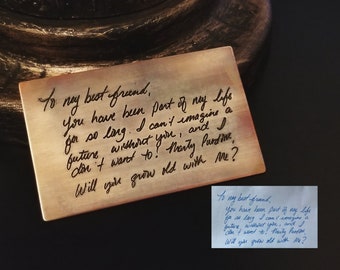 To my best friend,
You have been part of my life
for so long. I can't imagine a
future, without you, and I
don't want to! Party Pardon,
Will you grow old with me?
To my best friend,
You have been part of my life
for so long. I can't imagine a
future, without you, and I
don't want to!
Will you grow old with me?